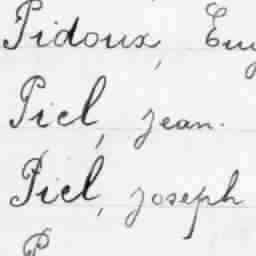 Pidoux, Eug
Piel, Jean.
Piel, Joseph
P